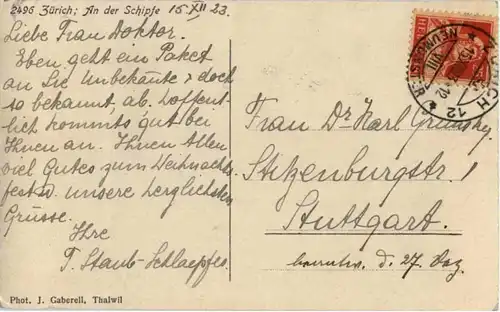 2496 Zürich; An der Schipfe 15. XII 23.
Liebe Frau Doktor.
Eben geht ein Paket
an Sie Unbekante & doch
so bekannt, ab. Hoffent-
lich kommts gut bei
Ihnen an. Ihnen Allen
viel Gutes zum Weihnachts-
fest u. unsere herzlichsten
Grüsse.
Ihre
F. Staub-Schlaepfer.
Phot. J. Gaberell, Thalwil
HELVETIA
12
Frau Dr Karl
Sitzenburgstr 1
Stuttgart.
beantw. d. 27 Dez.